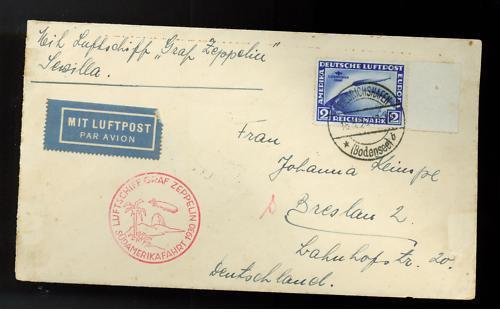 Mit Luftschiff „Graf Zeppelin"
Sevilla.
MIT LUFTPOST
PAR AVION
DEUTSCHE LUFTPOST
AMERIKA
EUROPA
2 REICHSMARK 2
FRIEDRICHSHAFEN
(Bodensee) b
LUFTSCHIFF GRAF ZEPPELIN
SÜDAMERIKAFAHRT 1930
Frau
Johanna Kempe
Breslau 2.
Bahnhofstr. 20.
Deutschland.